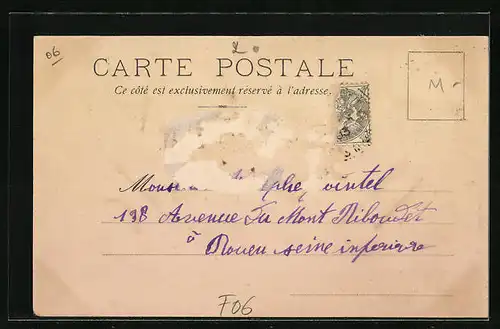 06
2.
CARTE POSTALE
Ce côté est exclusivement réservé à l'adresse.
M
198 Avenue du Mont Riboudet
à Rouen seine inferieure
F06